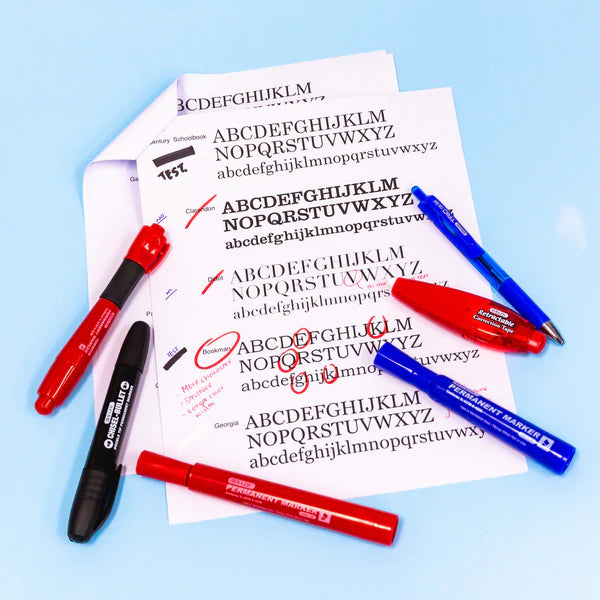 BCDEFGHIJKLM
entury Schoolbook
ABCDEFGHIJKLM
NOPQRSTUVWXYZ
abcdefghijklmnopqrstuvwxyz
TEST
Clarendon
ABCDEFGHIJKLM
NOPQRSTUVWXYZ
abcdefghijklmnopqrstuvwxyz
Didot
ABCDEFGHIJKLM
NOPQRSTUVWXYZ
abcdefghijklmnopqrs
TEST
Bookman
ABCDEFGHIJKLM
NOPQRSTUVWXYZ
abcdefghijklmnopqrstuv
More character
- structure
- Longer chars
width
Georgia
ABCDEFGHIJKLM
NOPQRSTUVWXYZ
abcdefghijklmnopqrstuvw
Retractable
Correction Tape
PERMANENT MARKER
CHISEL+BULLET
DOUBLE TIP PERMANENT MARKER
PERMANENT MARKER